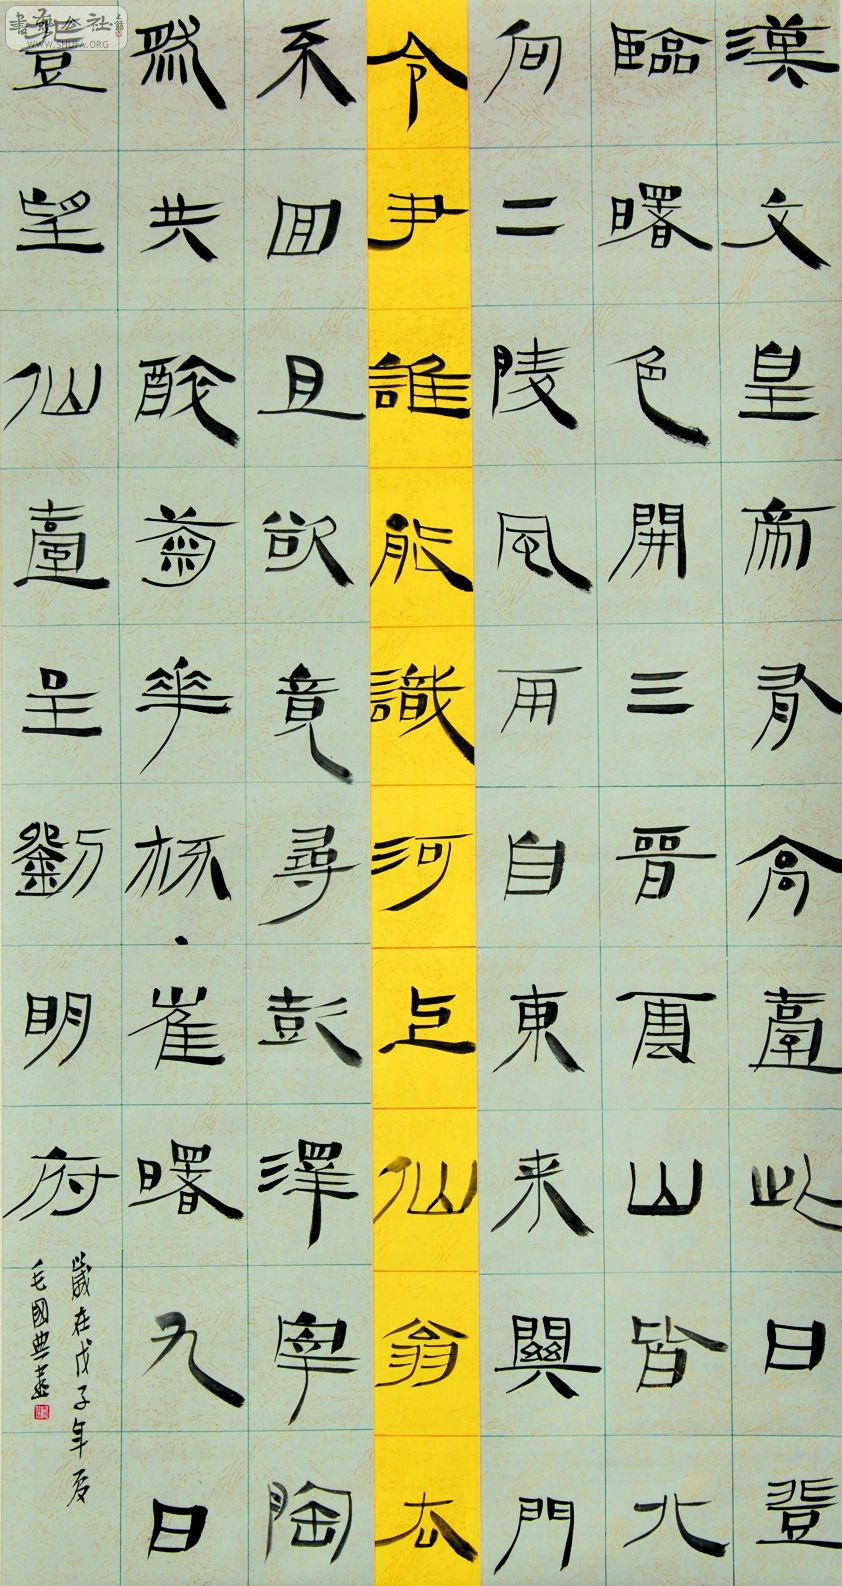 漢文皇帝有高臺此日登
臨曙色開三晉雲山皆北
向二陵風雨自東来關門
令尹誰能識河上仙翁去
不囬且欲竟尋彭澤宰陶
然共醉菊花杯·崔曙九日
登望仙臺呈劉明府
歲在戊子年夏
毛國典書
書法公社
WWW.SHUFA.ORG